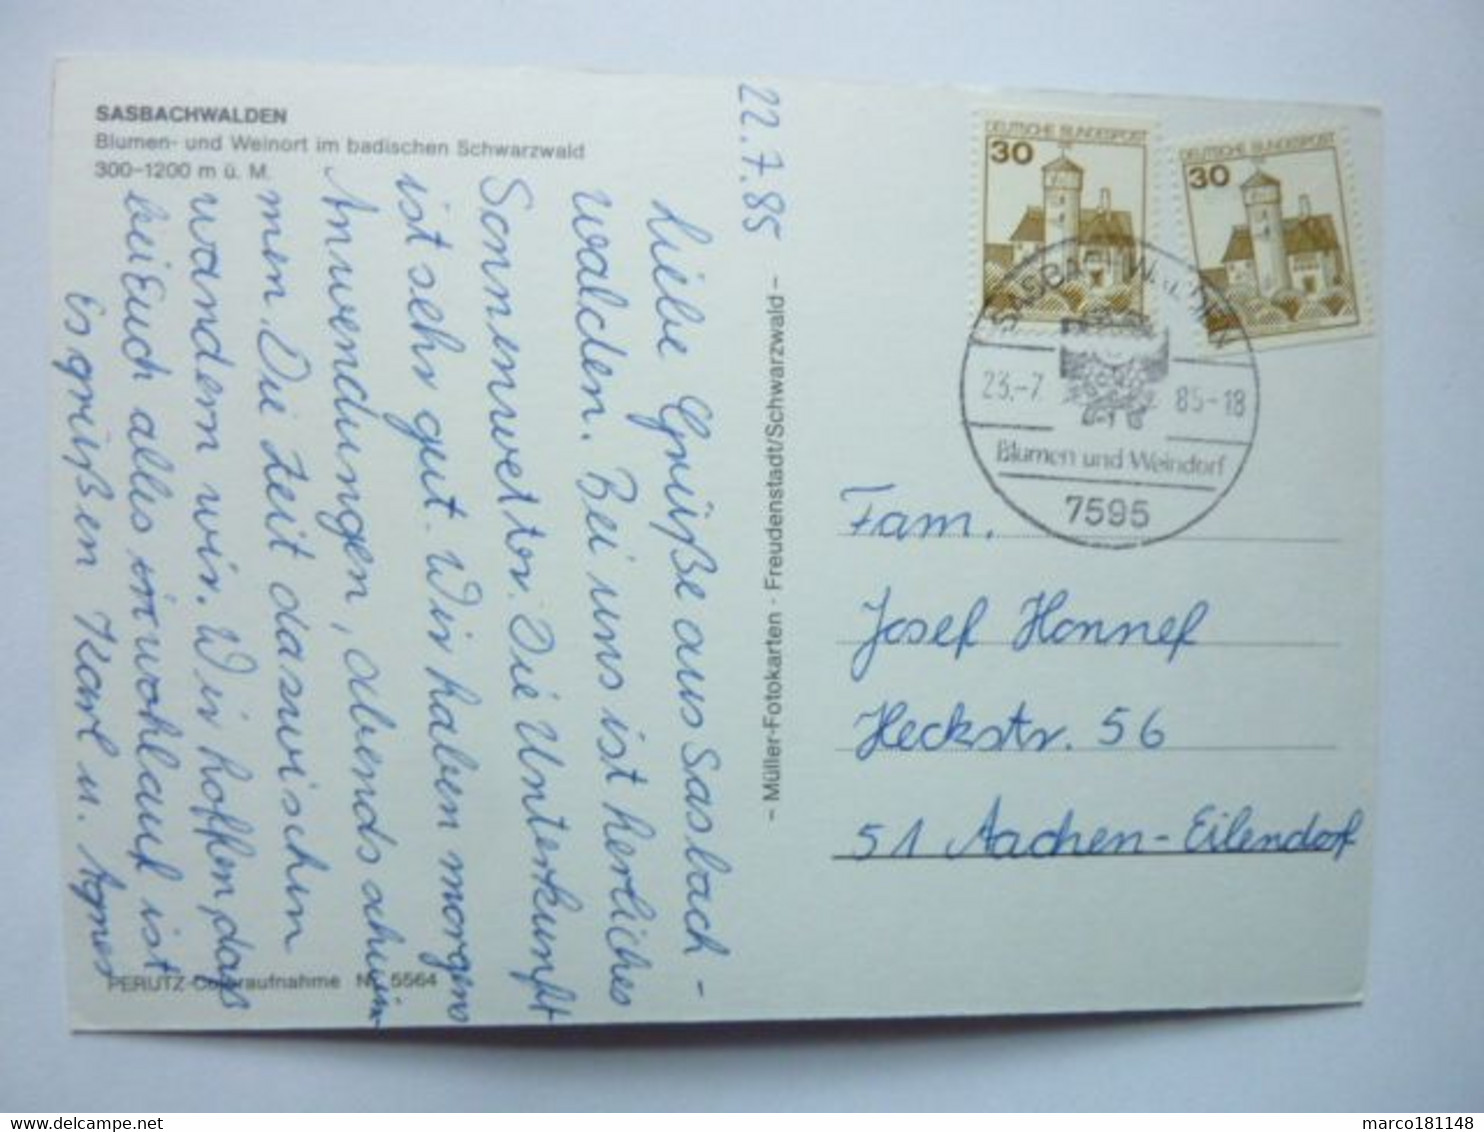 SASBACHWALDEN
Blumen- und Weinort im badischen Schwarzwald
300-1200 m ü. M.
22.7.85
Liebe Grüße aus Sasbach-
walden. Bei uns ist herrliches
Sonnenwetter. Die Unterkunft
ist sehr gut. Wir haben morgens
Anwendungen, abends schwim-
men. Die Zeit dazwischen
wandern wir. Wir hoffen, dass
bei Euch alles wohlauf ist
Es grüßen Karl u. Agnes
PERUTZ-Coloraufnahme Nr. 5564
- Müller-Fotokarten · Freudenstadt/Schwarzwald -
DEUTSCHE BUNDESPOST
30
DEUTSCHE BUNDESPOST
30
SASBACHWALDEN
23.-7. 85-18
Blumen und Weindorf
7595
Fam.
Josef Honnef
Heckstr. 56
51 Aachen-Eilendorf
delcampe.net
marco181148